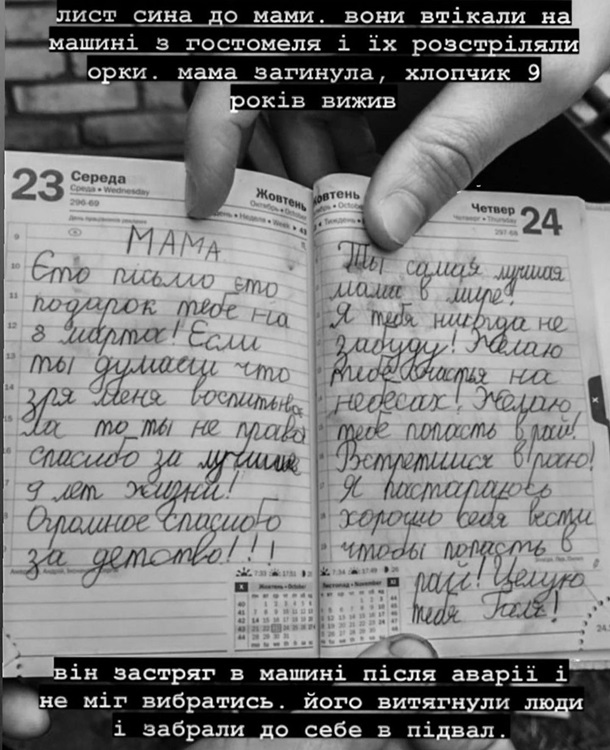 лист сина до мами. вони втікали на
машині з гостомеля і їх розстріляли
орки. мама загинула, хлопчик 9
років вижив
23 Середа
Среда • Wednesday
296-69
Жовтень
Октябрь • October
МАМА
Єто пісьмо ето
подарок тебе на
8 марта! Если
ты думаеш что
зря меня воспитыва
ла то ты не права
спасибо за лучшие
9 лет жизни!
Огромное спасибо
за детство!!!
Жовтень • October
Четвер 24
Четверг • Thursday
297-68
Ты самая лучшая
мама в мире!
Я тебя никогда не
забуду! Желаю
тибе счастья на
небесах! Желаю
тебе попасть в рай!
Встретимся в раю!
Я пастараюсь
хорошо себя вести
чтобы попасть в
рай! Целую
тебя Галя!
він застряг в машині після аварії і
не міг вибратись. його витягнули люди
і забрали до себе в підвал.